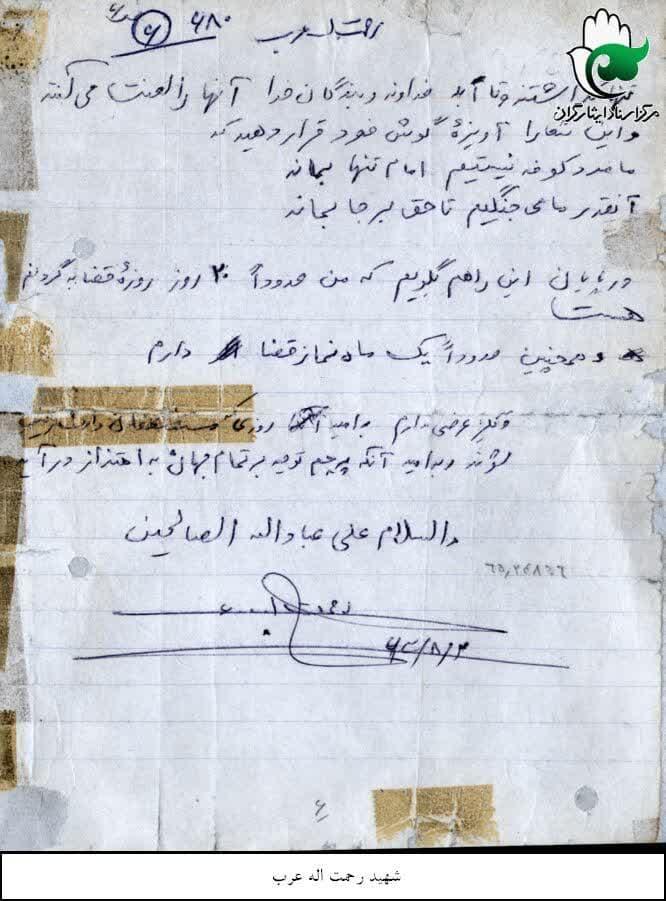 ۶۸۰ ۶
رحمت اله عرب
مرکز اسناد ایثارگران
خداوند و بندگان خدا آنها را لعنت می کنند
و این شعار را آویزهٔ گوش خود قرار دهید که
ما مرد کوفه نیستیم امام تنها بماند
آنقدر ما می جنگیم تا حق برجا بماند
در پایان این را هم بگویم که من حدوداً ۲۰ روز روزهٔ قضا به گردنم
هست
و همچنین حدوداً یک ماه نماز قضا دارم
دیگر عرضی ندارم به امید روزی که مستضعفان وارث زمین
شوند و به امید آنکه پرچم توحید بر تمام جهان به اهتزاز در آید
والسلام علی عباد اله الصالحین
رحمت اله عرب
۶
شهید رحمت اله عرب